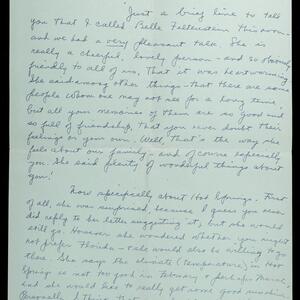 Just a brief line to tell
you that I called Belle Felterstein this noon -
and we had a very pleasant talk. She is
really a cheerful, lovely person - and so
friendly to all of us, that it was heartwarming.
She said among other things - that there are some
people whom one may not see for a long time,
but all your memories of them are so good and
so full of friendship, that you never doubt their
feelings or your own. Well, that's the way she
feels about our family - and of course especially
you. She said plenty of wonderful things about
you!
Now specifically about Hot Springs. First
of all, she was surprised, because I guess you never
did reply to her letter suggesting it, but she would
still go. However she wondered whether you might
not prefer Florida - she would also be willing to go
there. She says the climate (temperature) in Hot
Springs is not too good in February & perhaps March,
and she would like to really get some good sunshine.
Personally I think that